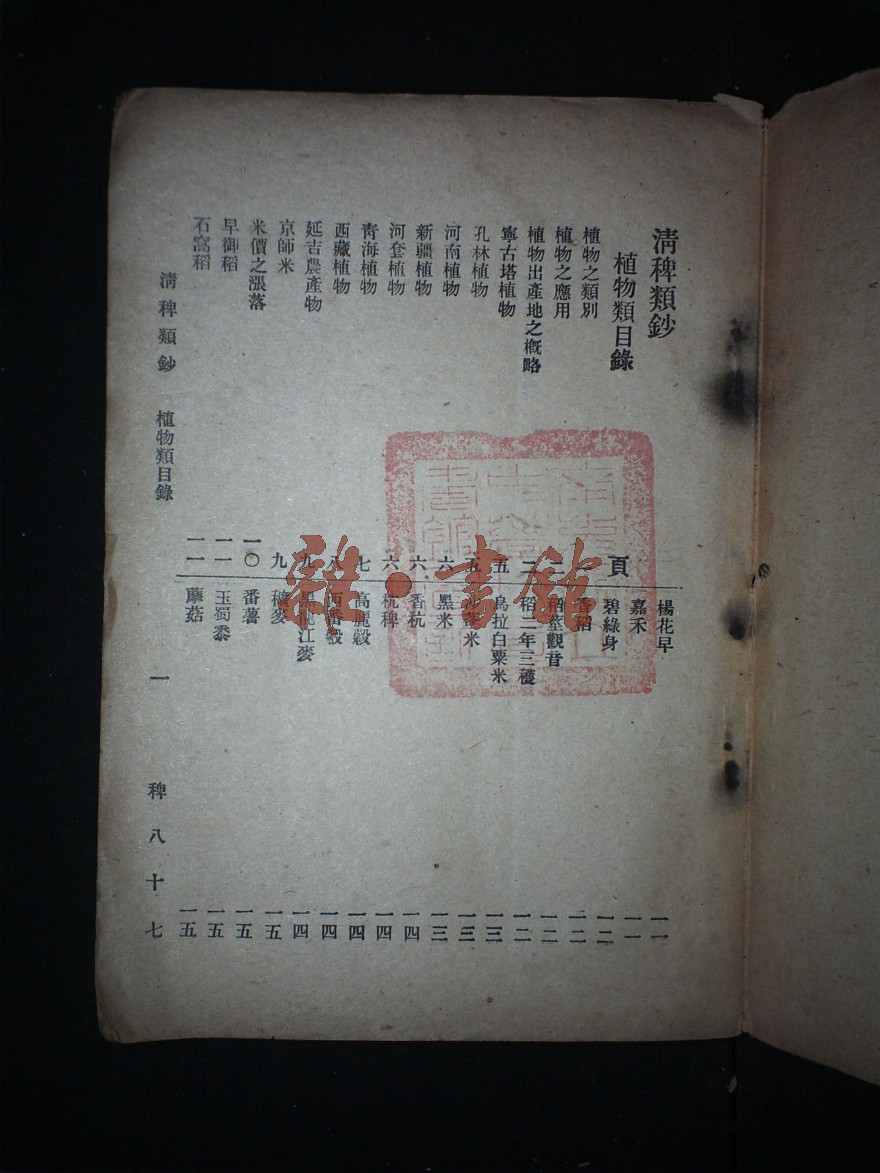 清稗類鈔
植物類目錄 頁
植物之類別
植物之應用
植物出產地之概略 二
寧古塔植物 五
孔林植物 五
河南植物 六
新疆植物 六
河套植物 六
青海植物 七
西藏植物 八
延吉農產物 九
京師米 九
米價之漲落 一〇
早御稻 一一
石窩稻 一一
楊花早 一一
嘉禾 一一
碧綠身 一二
香稻 一二
稻莖觀音 一二
稻二年三穫 一二
烏拉白粟米 一三
沙蓬米 一三
黑米 一三
香秔 一四
秔稗 一四
高麗穀 一四
西番穀 一四
黑龍江麥 一四
穬麥 一五
番薯 一五
玉蜀黍 一五
蘑菇 一五
清稗類鈔 植物類目錄 一 稗八十七
雜·書館